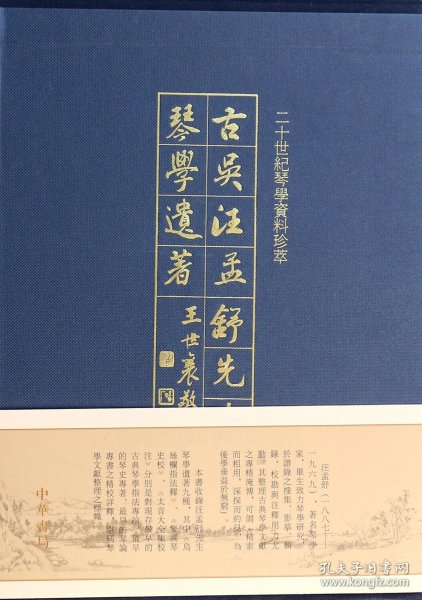 二十世紀琴學資料珍萃
古吳汪孟舒先
琴學遺著
王世襄敬
汪孟舒(一八八七—
一九六九),著名琴學
家,畢生致力琴學研究,
於譜錄之搜集、影摹、輯
錄、校勘與注釋用力尤
勤。其整理古典琴學文獻
之專精淹博,可謂「精索
而粗用,深探而約見」,為
後學垂益於無窮。
本書收錄汪孟舒先生
琴學遺著九種,其中《烏
絲欄指法釋》、《樂圃琴
史校》、《太音大全集校
注》分別是對現存最早的
古典琴學指法專論、最早
的琴史專著、最早的琴論
專書之精校詳釋,
學文獻整理之標幟。
中華書局
孔夫子旧书网
www.kongfz.com